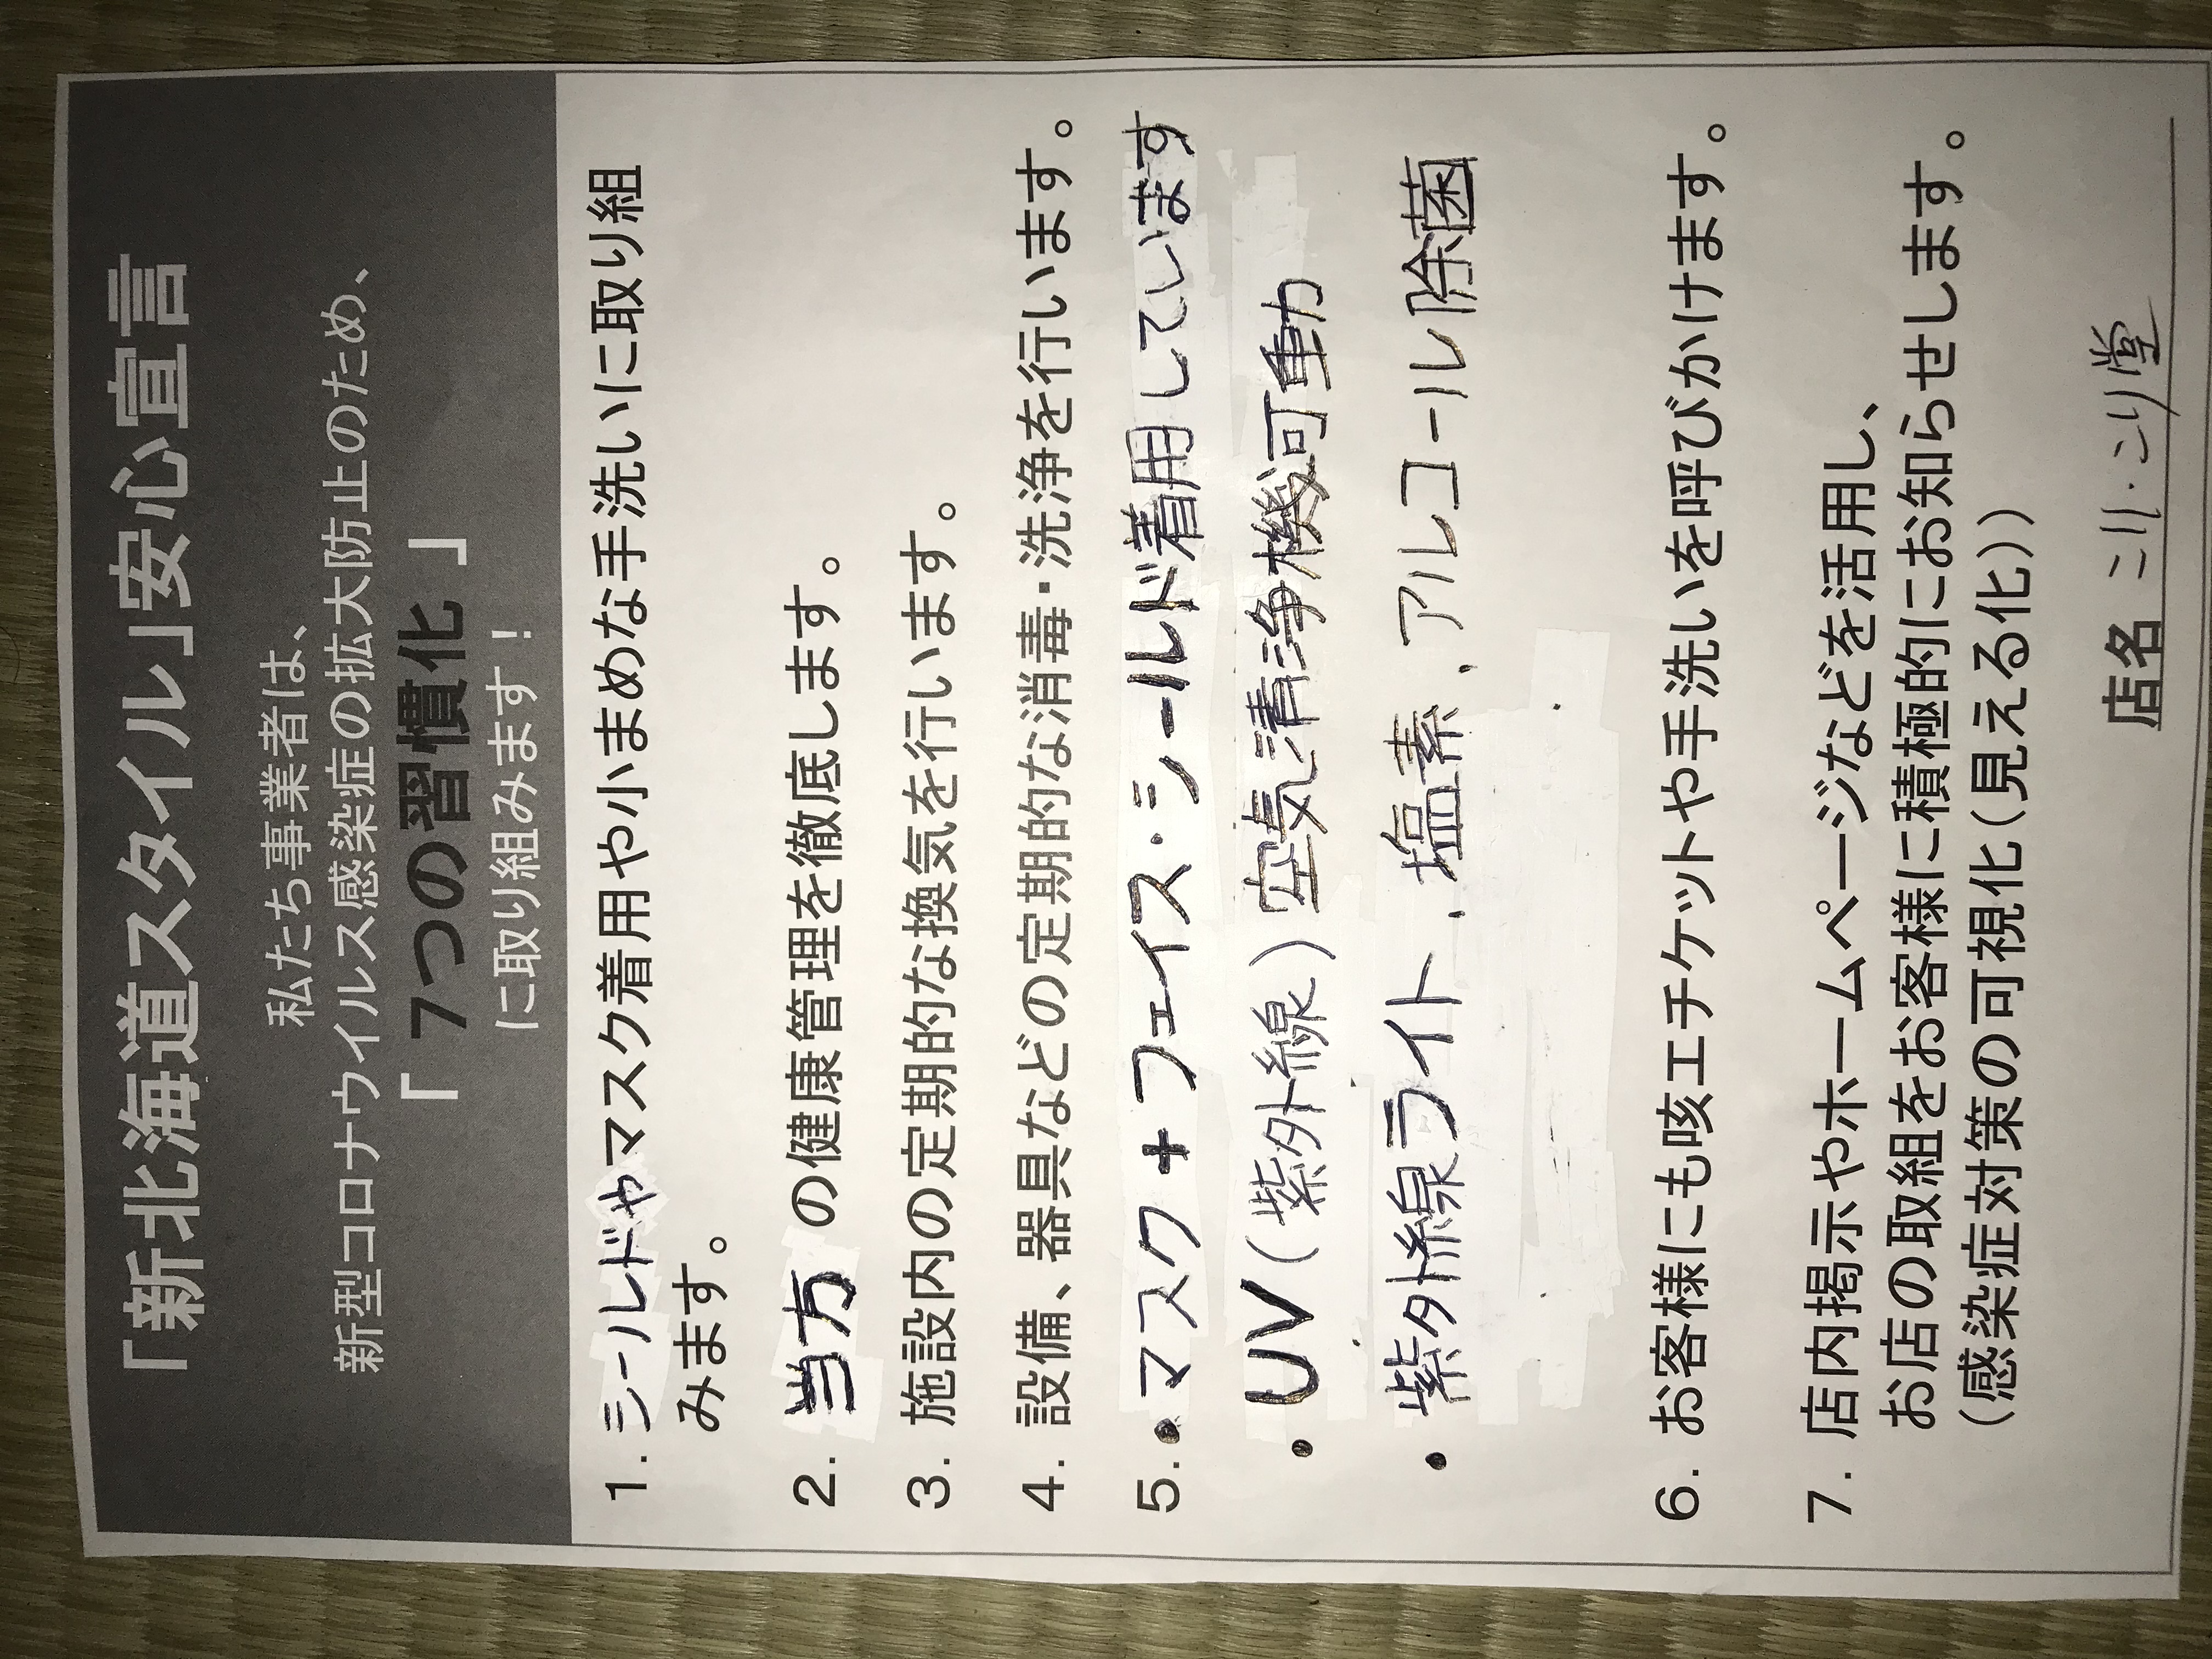 「新北海道スタイル」安心宣言
私たち事業者は、
新型コロナウイルス感染症の拡大防止のため、
「７つの習慣化」
に取り組みます！
1. シールドやマスク着用や小まめな手洗いに取り組
みます。
2. 当方の健康管理を徹底します。
3. 施設内の定期的な換気を行います。
4. 設備、器具などの定期的な消毒・洗浄を行います。
5. ・マスク+フェイス・シールド着用しています
・UV(紫外線)空気清浄機可動
・紫外線ライト、塩素、アルコール除菌
6. お客様にも咳エチケットや手洗いを呼びかけます。
7. 店内掲示やホームページなどを活用し、
お店の取組をお客様に積極的にお知らせします。
(感染症対策の可視化(見える化))
店名 こり・こり堂